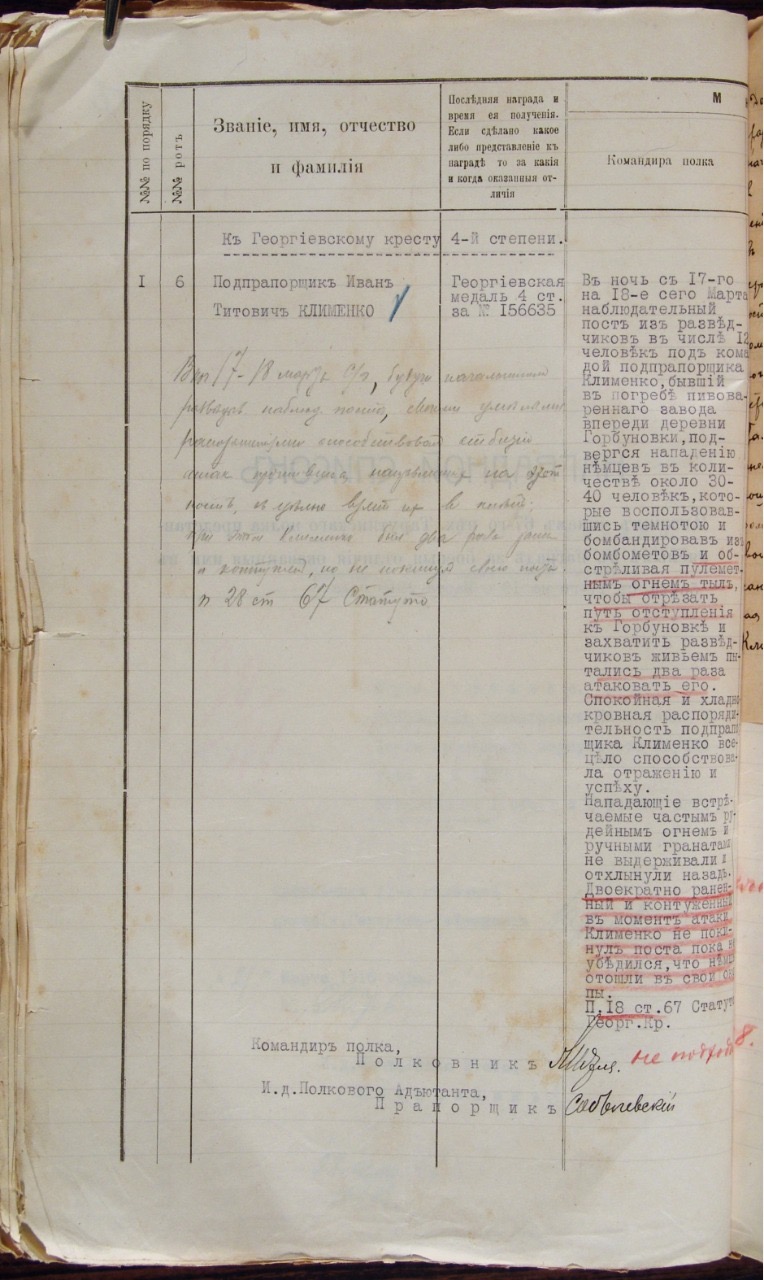 №№ по порядку
№№ ротъ
Званіе, имя, отчество
и фамилія
Послѣдняя награда и
время ея полученія.
Если сдѣлано какое
либо представленіе къ
наградѣ то за какія
и когда оказанныя от-
личія
М
Командира полка
Къ Георгіевскому кресту 4-й степени.
I
6
Подпрапорщикъ Иванъ
Титовичъ КЛИМЕНКО
Георгіевская
медаль 4 ст.
за № 156635
Въ ночь съ 17-го
на 18-е сего Марта
наблюдательный
постъ изъ развѣд-
чиковъ въ числѣ 12
человѣкъ подъ кома
дой подпрапорщика
Клименко,бывшій
въ погребѣ пивова-
реннаго завода
впереди деревни
Горбуновки,под-
вергся нападенію
нѣмцевъ въ коли-
чествѣ около 30-
40 человѣкъ,кото-
рые воспользовав-
шись темнотою и
бомбандировавъ изъ
бомбометовъ и об-
стрѣливая пулемет-
нымъ огнемъ тылъ,
чтобы отрѣзать
путь отступленія
къ Горбуновкѣ и
захватить развѣд-
чиковъ живьемъ пы-
тались два раза
атаковать его.
Спокойная и хладно
кровная распоряди-
тельность подпрапо
щика Клименко все-
цѣло способствова-
ла отраженію и
успѣху.
Нападающіе встрѣ-
чаемые частымъ ру-
дейнымъ огнемъ и
ручными гранатами
не выдерживали и
отхлынули назадъ.
Двоекратно ранен-
ный и контуженный
въ моментъ атаки
Клименко не поки-
нулъ поста пока не
убѣдился,что нѣмцы
отошли въ свои око
пы.
П.18 ст.67 Статута
Георг.Кр.
17-18 марта с/г, будучи начальникомъ
наблюд. поста, своими умѣлыми
распоряженіями способствовалъ отбитію
атакъ противника, на этотъ
постъ, съ цѣлью взять их в плѣнъ.
при этомъ Клименко былъ два раза раненъ
и контуженъ, но не покинулъ своего поста
п 28 ст 67 Статута
Командиръ полка,
Полковникъ
не подход
8.
И.д.Полкового Адъютанта,
Прапорщикъ Соболевскій